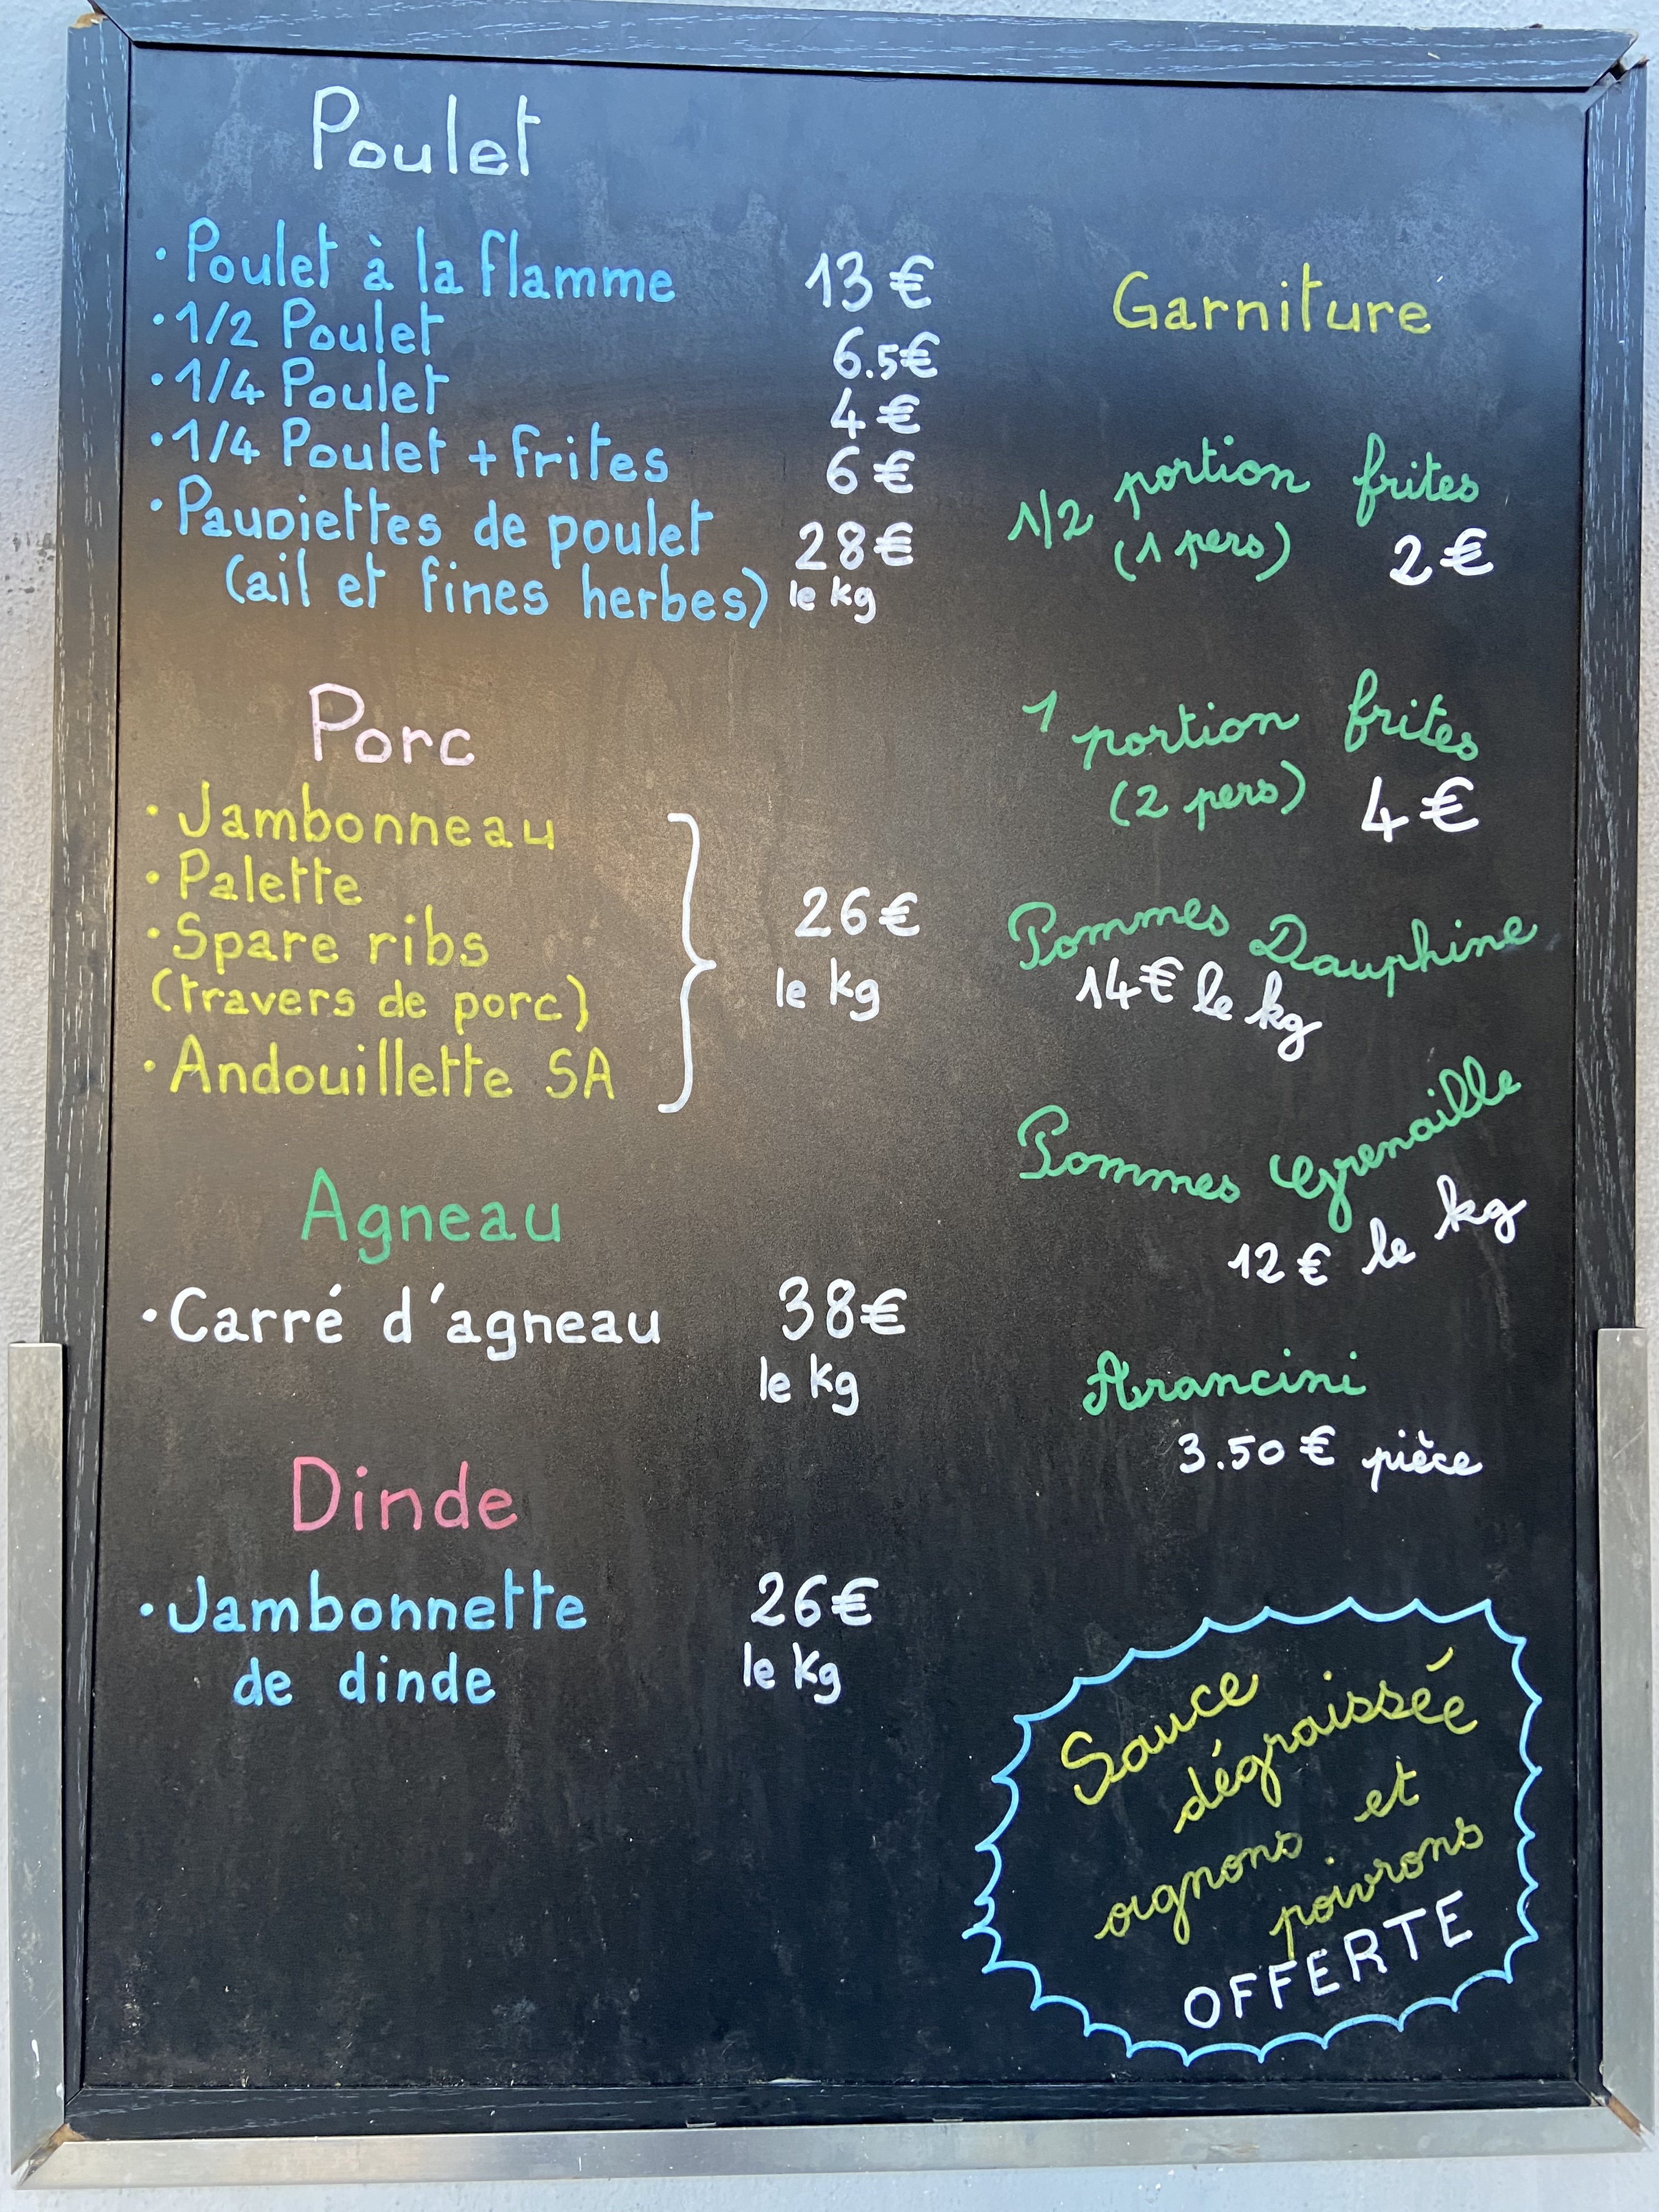 Poulet
• Poulet à la flamme 13 €
• 1/2 Poulet 6.5€
• 1/4 Poulet 4 €
• 1/4 Poulet + frites 6 €
• Paupiettes de poulet 28€
(ail et fines herbes) le kg
Porc
• Jambonneau
• Palette
• Spare ribs 26€
(travers de porc) le kg
• Andouillette SA
Agneau
• Carré d'agneau 38€
le kg
Dinde
• Jambonnette 26€
de dinde le kg
Garniture
1/2 portion frites
(1 pers) 2 €
1 portion frites
(2 pers) 4 €
Pommes Dauphine
14€ le kg
Pommes Grenaille
12 € le kg
Arancini
3.50 € pièce
Sauce
dégraissée
oignons et
poivrons
OFFERTE